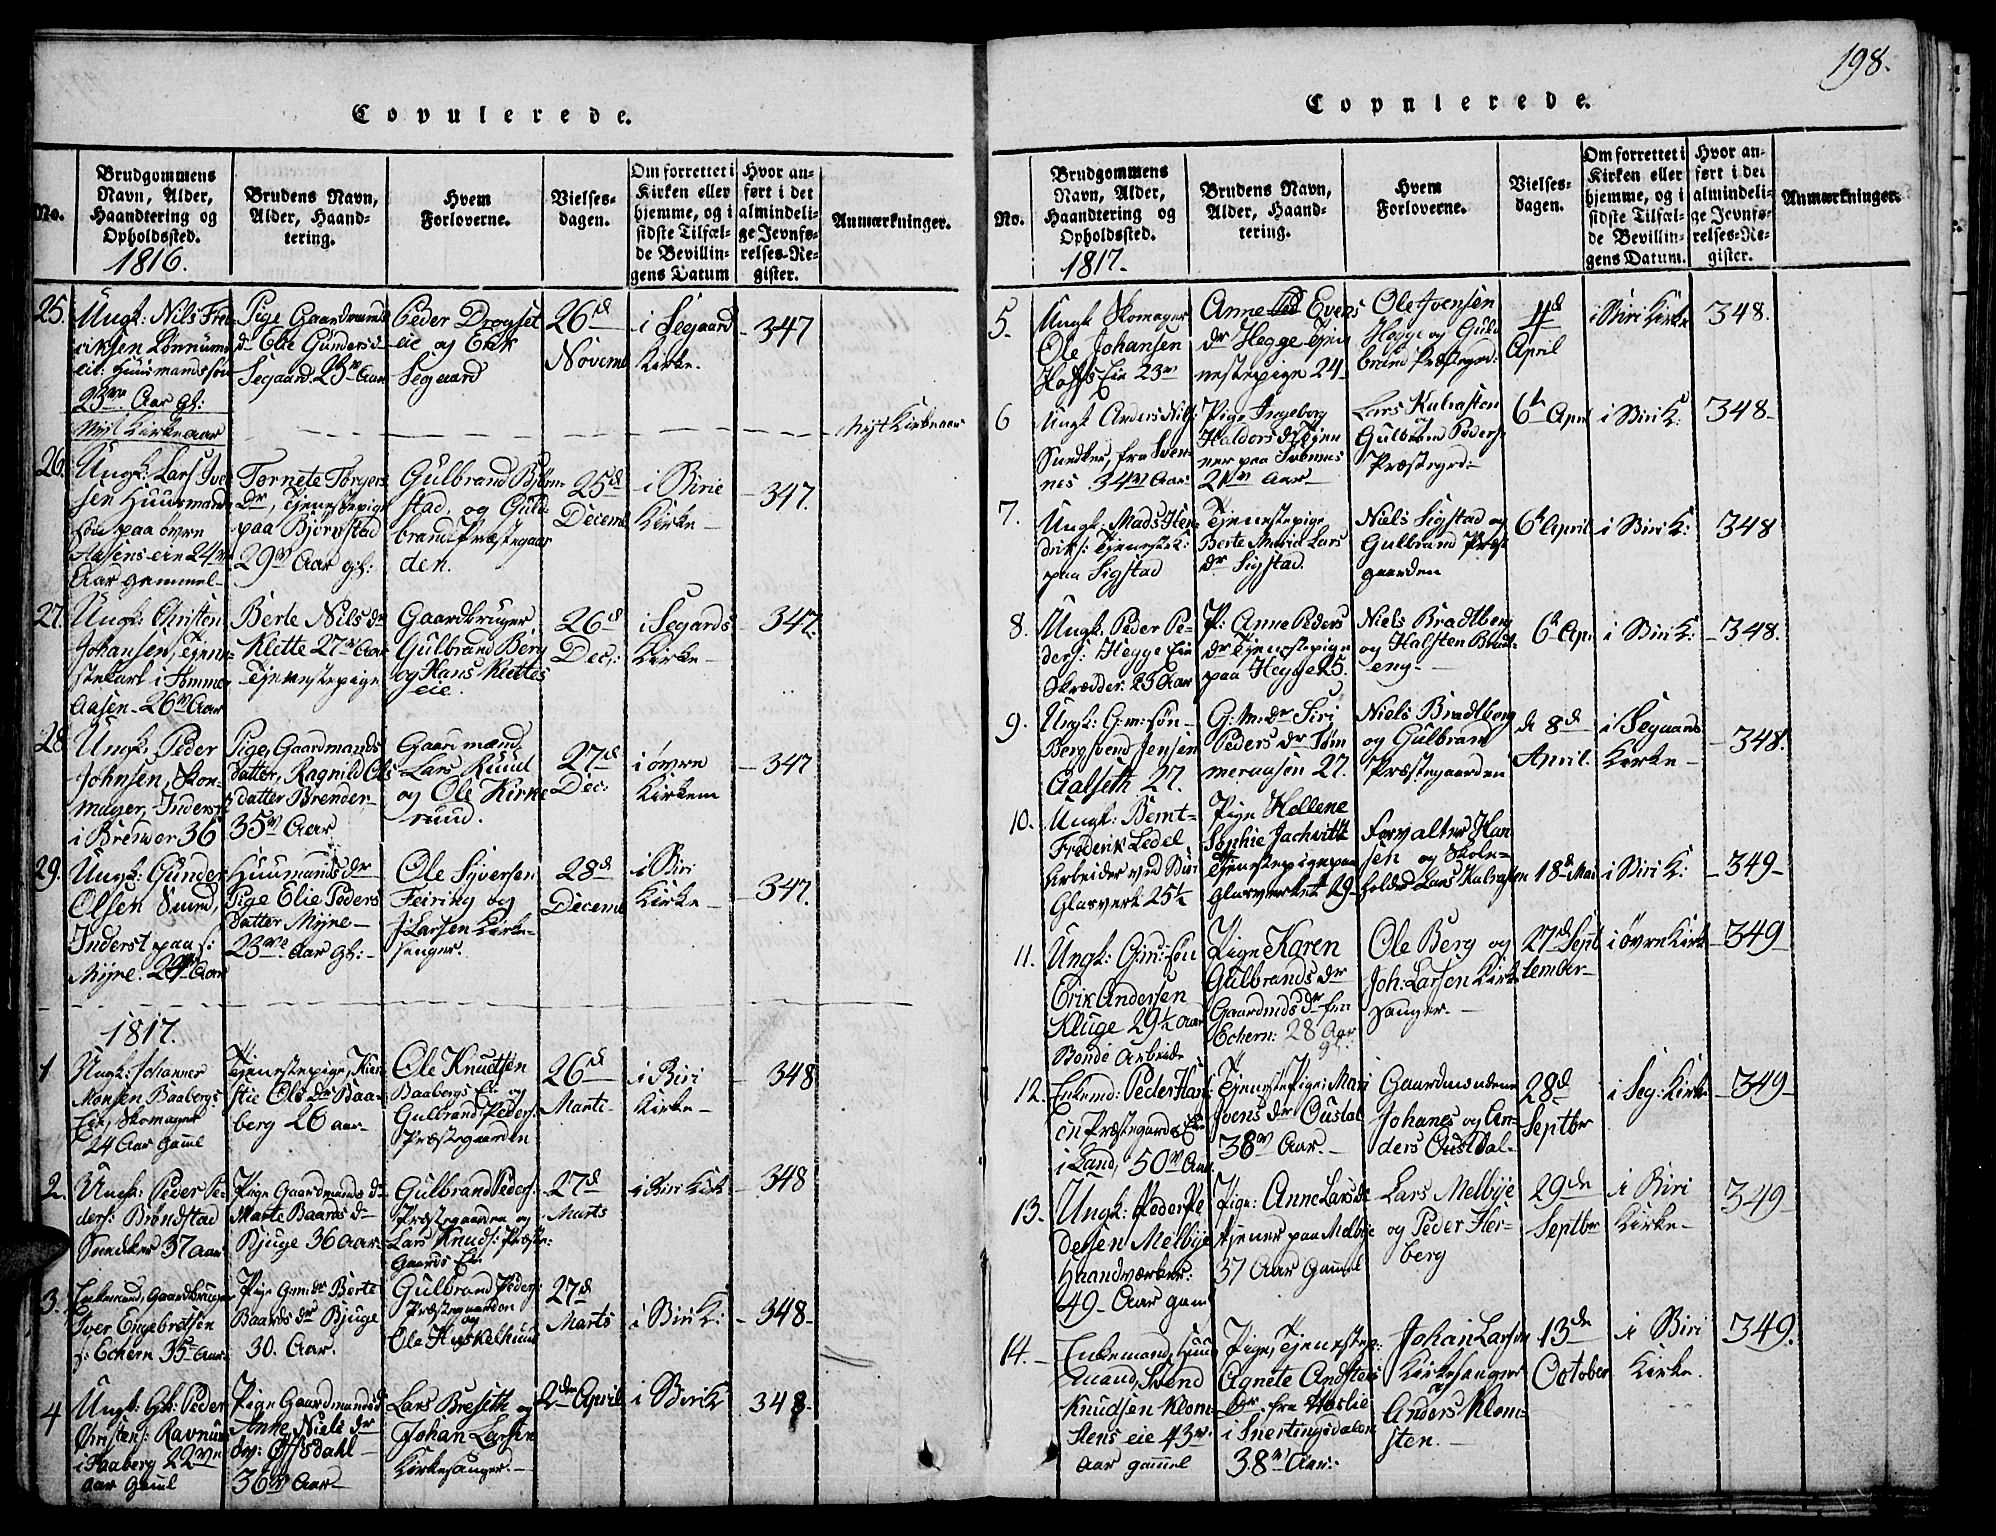 198.
Copulerede.
No.
Brudgommens
Navn, Alder,
Haandtering og
Opholdssted.
1816.
Brudens Navn,
Alder, Haand-
tering.
Hvem
Forloverne.
Vielses-
dagen.
Om forrettet i
Kirken eller
hjemme, og i
sidste Tilfæl-
de Bevillin-
gens Datum
Hvor an-
ført i det
almindeli-
ge Jevnfø-
relses-Re-
gister.
Anmærkninger.
25.
Ungk: Nils Fred-
riksen Lønnum
eie: Huusmandssøn
23 Aar gl:
Nyt Kirkeaar
Pige Gaardmands
dr Elie Gunders dr
Segaard. 23 Aar
Peder Dronset
eie og Erik
Segaard
26d
Novemb
i Segaard
Kirke.
347
Nyt Kirkeaar
26.
Ungk: Lars Iver-
sen Huusmands
søn paa øvre
Aasens eie 24
Aar gammel
Tørnete Törgers
Dr, Tjenestepige
paa Bjørnstad
29 Aar gl:
Gulbrand Bjørn-
stad, og Guld-
brand Præstegaar
den.
25d
Decemb
i Birie
Kirke
347.
27.
Ungk: Christen
Johansen, Tjene-
stekarl i Tømmer-
Aasen. 26 Aar
Berte Nils dr
Klette 27 Aar
Tjenestepige
Gaardbruger
Gulbrand Berg
og Hans Klettes
eie.
26d
Dec:
i Segaards
Kirke
347.
28
Ungk: Peder
Johnsen, Skoe-
mager, Inderst
i Brender 36
Pige, Gaardmands
datter, Ragnild Ols
datter Brender-
35 Aar
Gaardmænd
Lars Ruud
og Ole Kirke
ruud.
27d
Dec:
i øvre
Kirken
347
29.
Ungk: Gunder
Olsen Sund,
Inderst paa
Myre. 29 Aar
Huusmands dr
Pige Elie Peders
Datter Myre
23 Aar gl:
Ole Syversen
Feiring og
J: Larsen Kirke-
sanger.
28d
Decemb
i Biri
Kirke
347.
1817.
1
Ungk: Johannes
Monsen Baabergs
Eie, Skomager
24 Aar gaml
Tjenestepige, Kier-
stie Ols Dr Baa-
berg 26 aar
Ole Knudsen
Baabergs Eie og
Gulbrand Peders:
Præstegaarden
26d
Marti
i Biri
Kirke
348
2.
Ungk: Peder Pe-
ders: Brøndstad
Snedker 37 aar
Pige Gaardmands dr
Marte Baards dr
Bjuge 36 Aar
Gulbrand Peders:
Præstegaarden og
Lars Knuds: Præste-
Gaards Eie
27d
Marts
i Biri Kirk
348
3.
Enkemand, Gaardbruger
Iver Engebretsen
s: Echern 35 Aar
Pige G:m:dr Berte
Baards dr Bjuge
30. Aar.
Gulbrand Peders:
Præstegaarden
og
Ole Huskelhuus
27d
Marts
i Biri K:
348
4
Ungk: Gb: Peder
Christens: Ravnum
i Faaberg 22
aar Gaml
Pige Gaardmands d
Anne Niels dr
Øfsdahl
36 Aar
Lars Bresæth og
Johan Larsen
Kirkesanger.
2den April
i Biri K
348
Copulerede.
No.
Brudgommens
Navn, Alder,
Haandtering og
Opholdssted.
1817.
Brudens Navn,
Alder, Haand-
tering.
Hvem
Forloverne.
Vielses-
dagen.
Om forrettet i
Kirken eller
hjemme, og i
sidste Tilfæl-
de Bevillin-
gens Datum.
Hvor an-
ført i det
almindeli-
ge Jevnfø-
relses-Re-
gister.
Anmærkninger.
5.
Ungk Skomager
Ole Johansen
Hoffs Eie 23
Anne Evens
dr Hegge Tje-
nestepige 24
Ole Ivensen
Hegge og Guld
brand Præstegrd:
4d
April
i Biri Kirke
348.
6
Ungk Anders Nils:
Snedker, fra Sven-
nes 34 Aar
Pige Ingeborg
Haldors dr Tjen
ner paa Svennes
21 Aar
Lars Kalrasten
Gulbrand Peders:
Præstegrd
6te April
i Biri K:
348
7.
Ungk: Mads Hen
driks: Tjenestek:
paa Sigstad
Tjenestepige
Berte Maria Lars
dr Sigstad
Niels Sigstad og
Gulbrand Præst
gaarden
6te April
i Biri K:
348
8.
Ungk: Peder Pe-
ders: Hegge Eie
Skrædder. 25 Aar
P: Anne Peders
dr Tjenestepige
paa Hegge 25.
Niels Bradtberg
og Halsten Bradt-
eng
6te Ap:
i Biri K:
348.
9.
Ungk: G:m: søn
Bergsvend Jensen
Aalseth 27.
G:M: dr Siri
Peders dr Tøm
meraasen 27.
Niels Bradtberg
og Gulbrand
Præstegaarden
d 8de
April
i Segaards
Kirke
348.
10.
Ungk: Bernt
Frederik Ledel
Arbeider ved Biri
Glasverk 25½
Pige Hellene
Sophie Jachwitt
Tjenestepige paa
Glasverket 29
Forvalter Han
sen og Skole-
holder Lars Kalrasten
18de Mai
i Biri K:
349
11.
Ungk: G:m: søn
Erik Andersen
Kluge 29½ Aar
Bonde Arbeide
Pige Karen
Gulbrands dr
Gaardmds dr fra
Echern: 28 Aar
gl:
Ole Berg og
Joh: Larsen Kirke
sanger.
27d Sept
tember
i øvre Kirk
349
12.
Enkemd: Peder Han:
Præstegaards Eie
i Land, 50 Aar
Tjeneste Pige: Mari
Ivens dr Oustal
38 Aar.
Gaardmændene
Johanes og An-
ders Oustdal
28d
Septbr
i Seg: Kirke
349
13.
Ungk: Peder Pe
dersen Melbye
Haandværker:
49 Aar gaml
Pige: Anne Lars dr
tjener paa Melbye
37 Aar Gammel
Lars Melbye
og Peder Her-
berg
29de
Septbr
i Biri
Kirke
349
14.
Enkemand, Huus
Mand, Svend
Knudsen Klom-
stens eie 43
Aar gammel
Pige, Tjenestep:
Agnete Andsteis
Dr. fra Haslie
i Snertingsdalen
38 Aar:
Johan Larsen
Kirkesanger
og
Anders Klom-
sten.
13de
October
i Biri
Kirke.
349.